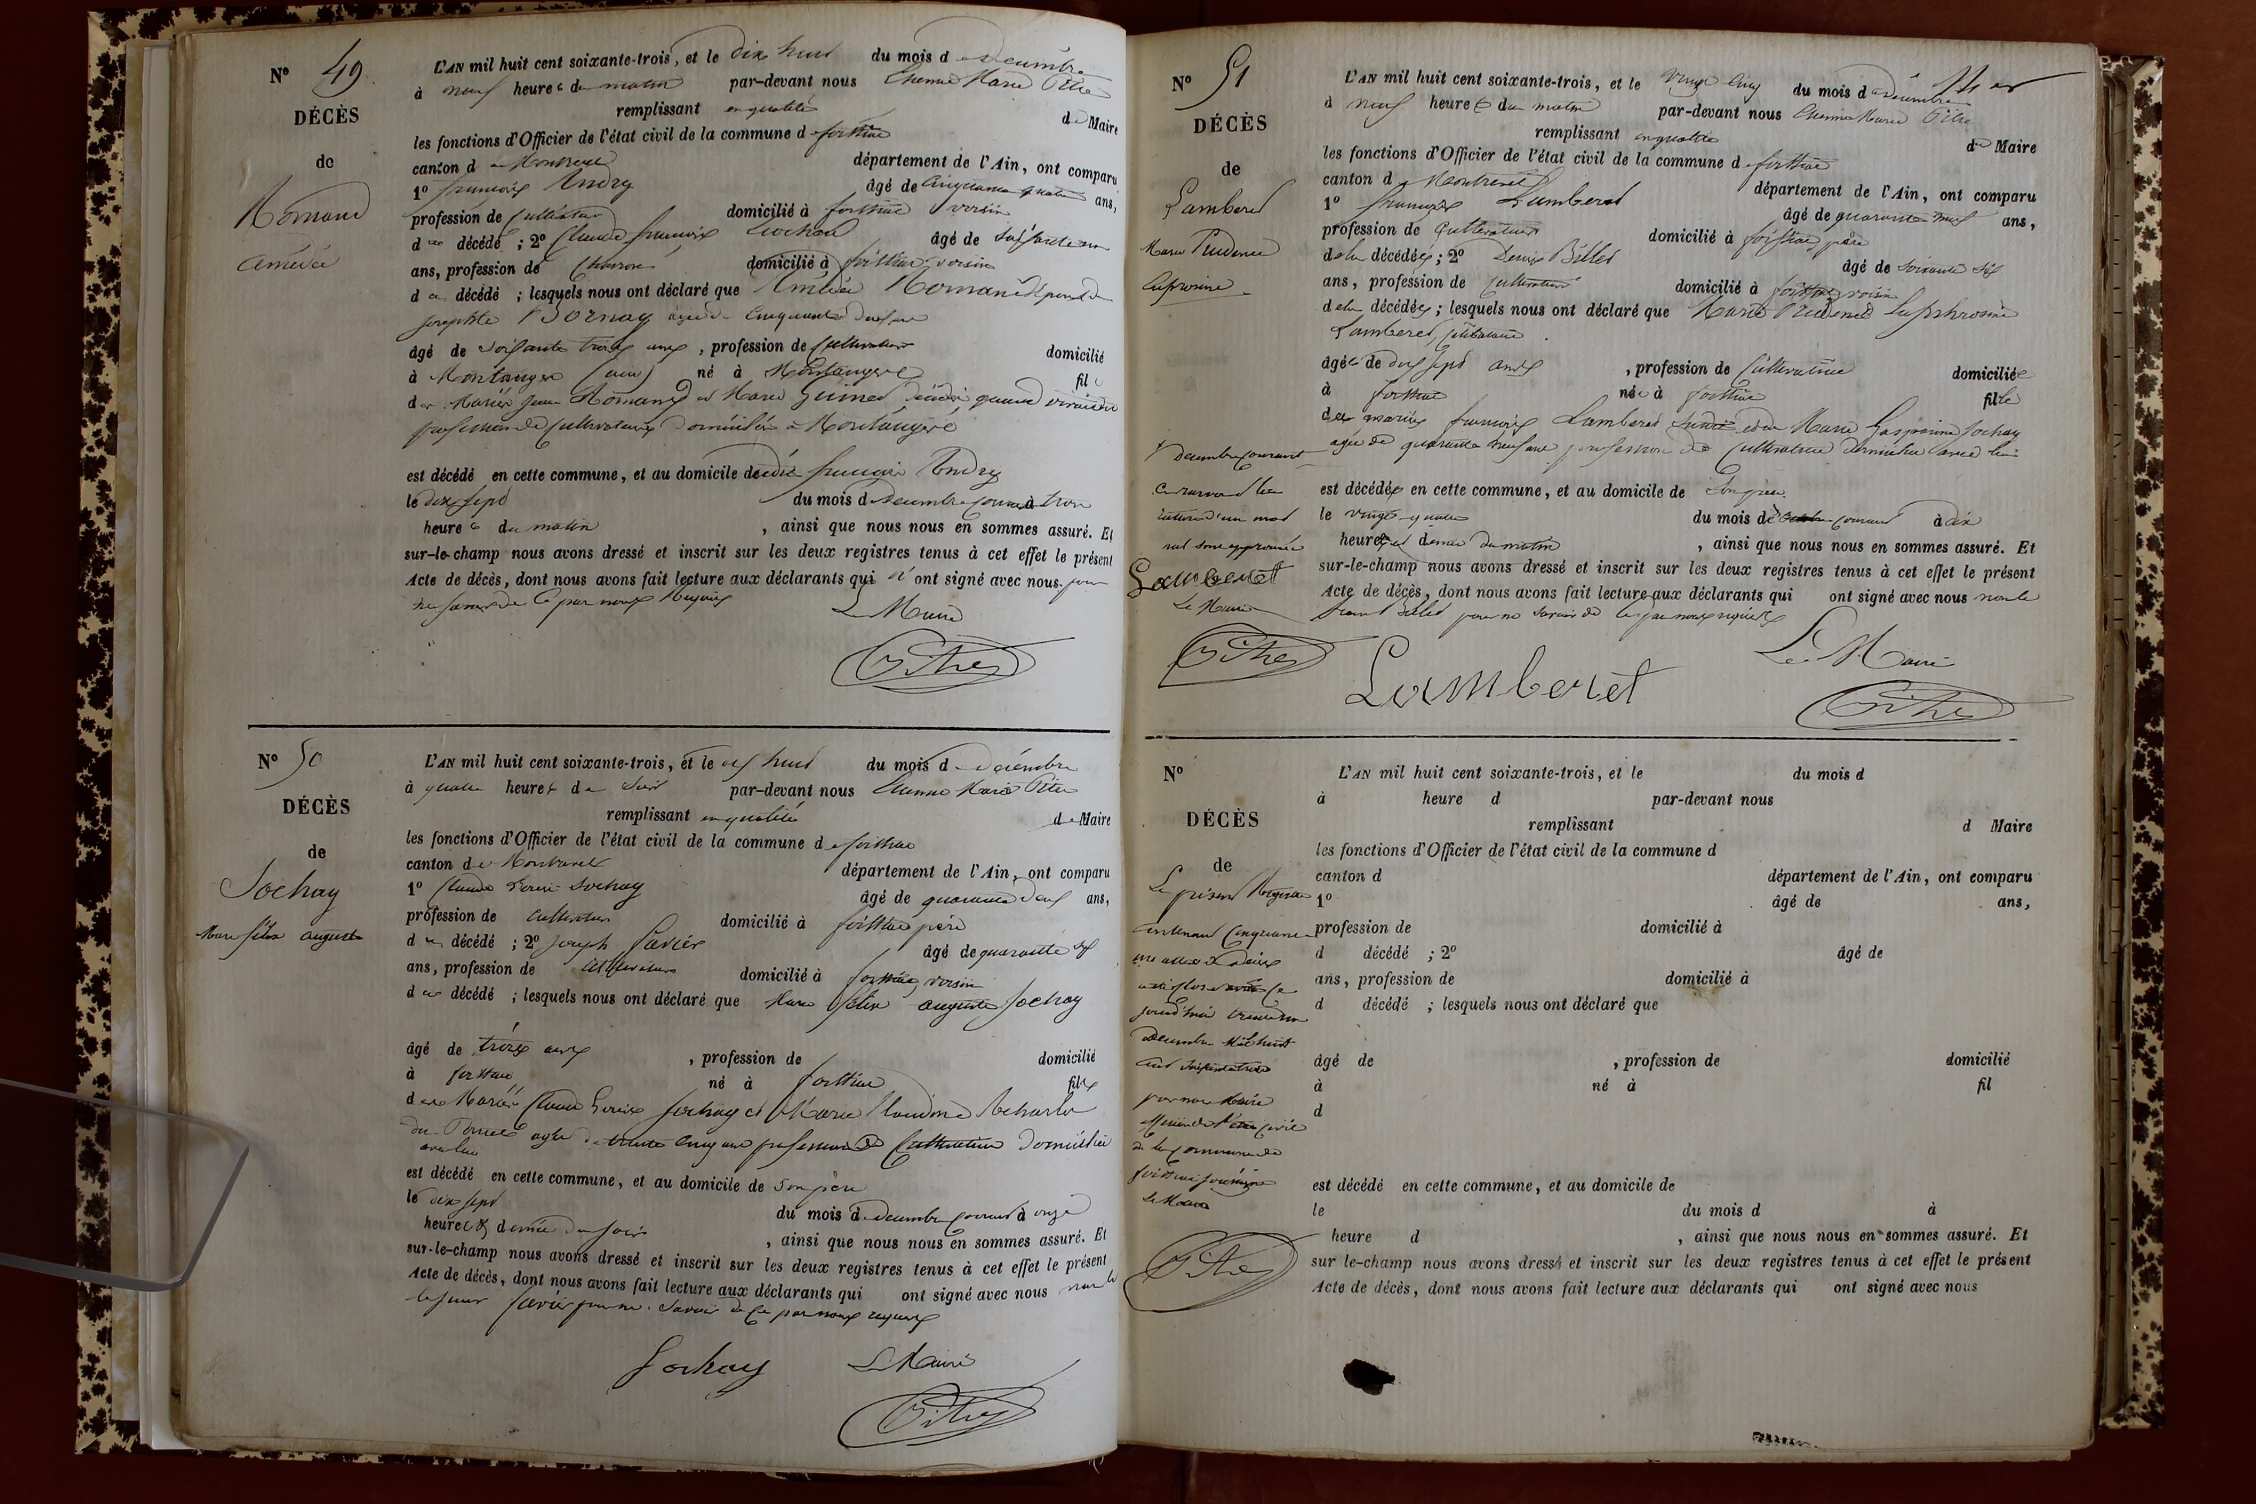 N° 49
DÉCÈS
de
Romand
Amédée
L'AN mil huit cent soixante-trois, et le dix huit du mois de décembre
à neuf heures du matin par-devant nous Etienne Marie Pitre
remplissant en qualité de Maire
les fonctions d'Officier de l'état civil de la commune de foissiat
canton de Montrevel département de l'Ain, ont comparu
1° françois Andry âgé de Cinquante quatre ans,
profession de Cultivateur domicilié à foissiat voisin
du décédé ; 2° Claude françois Cochard âgé de soissante
ans, profession de domicilié à foissiat voisin
du décédé ; lesquels nous ont déclaré que Amédée Romand époux de
josephte Bornay agée de Cinquante
âgé de soissante trois ans, profession de Cultivateur domicilié
à Montanges (ain) né à Montanges fils
des Mariés Jean Romand et Marie décédés quand vivaient
profession de Cultivateurs domiciliés à Montanges
est décédé en cette commune, et au domicile dudit françois Andry
le dix sept du mois de decembre courant à trois
heures du matin, ainsi que nous nous en sommes assuré. Et
sur-le-champ nous avons dressé et inscrit sur les deux registres tenus à cet effet le présent
Acte de décès, dont nous avons fait lecture aux déclarants qui n'ont signé avec nous pour
ne savoir de ce par nous requis
Le Maire
Pitre
N° 50
DÉCÈS
de
Sochay
Marie félix auguste
L'AN mil huit cent soixante-trois, et le dix huit du mois de décembre
à quatre heures du soir par-devant nous Etienne Marie Pitre
remplissant en qualité de Maire
les fonctions d'Officier de l'état civil de la commune de foissiat
canton de Montrevel département de l'Ain, ont comparu
1° Claude Sochay âgé de quarante deux ans,
profession de Cultivateur domicilié à foissiat père
du décédé ; 2° Joseph Savier âgé de quarante six
ans, profession de Cultivateur domicilié à foissiat voisin
du décédé ; lesquels nous ont déclaré que Marie félix auguste Sochay
âgé de trois ans, profession de domicilié
à foissiat né à foissiat fils
des Mariés Claude Sochay et Marie Claudine
agée de trente cinq ans profession de Cultivatrice domiciliée
avec lui
est décédé en cette commune, et au domicile de son père
le dix sept du mois de decembre courant à onze
heures & demie du soir, ainsi que nous nous en sommes assuré. Et
sur-le-champ nous avons dressé et inscrit sur les deux registres tenus à cet effet le présent
Acte de décès, dont nous avons fait lecture aux déclarants qui ont signé avec nous non le
Savier pour ne savoir de ce par nous requis
Sochay Le Maire
Pitre
N° 51
DÉCÈS
de
Lamberet
Marie Prudence
L'AN mil huit cent soixante-trois, et le vingt cinq du mois de décembre
à neuf heures du matin par-devant nous Etienne Marie Pitre
remplissant en qualité de Maire
les fonctions d'Officier de l'état civil de la commune de foissiat
canton de Montrevel département de l'Ain, ont comparu
1° françois Lamberet âgé de quarante neuf ans,
profession de Cultivateur domicilié à foissiat père
de la décédée ; 2° Denis Billet âgé de soixante six
ans, profession de Cultivateur domicilié à foissiat voisin
de la décédée ; lesquels nous ont déclaré que Marie Prudence
Lamberet Célibataire
âgée de dix sept ans, profession de Cultivatrice domiciliée
à foissiat née à foissiat fille
des mariés françois Lamberet susdit et de Marie Gasparine Sochay
agée de quarante neuf ans profession de Cultivatrice domiciliée avec lui
est décédée en cette commune, et au domicile de son père
le vingt quatre du mois de courant à dix
heures et demie du matin, ainsi que nous nous en sommes assuré. Et
sur-le-champ nous avons dressé et inscrit sur les deux registres tenus à cet effet le présent
Acte de décès, dont nous avons fait lecture aux déclarants qui ont signé avec nous non le
Billet pour ne savoir de ce par nous requis
decembre courant
Ce renvoi & la
rature d'un mot
nul sont approuvés
Lamberet
Le Maire
Pitre
Lamberet
Le Maire
Pitre
N°
DÉCÈS
de
L'AN mil huit cent soixante-trois, et le du mois d
à heure d par-devant nous
remplissant d Maire
les fonctions d'Officier de l'état civil de la commune d
canton d département de l'Ain, ont comparu
1° âgé de ans,
profession de domicilié à
d décédé ; 2° âgé de
ans, profession de domicilié à
d décédé ; lesquels nous ont déclaré que
âgé de , profession de domicilié
à né à fil
d
est décédé en cette commune, et au domicile de
le du mois d à
heure d , ainsi que nous nous en sommes assuré. Et
sur le-champ nous avons dressé et inscrit sur les deux registres tenus à cet effet le présent
Acte de décès, dont nous avons fait lecture aux déclarants qui ont signé avec nous
Le présent Registre
contenant Cinquante
un actes de décès
a été clos et arrêté ce
jourd'hui trente un
decembre Mil huit
cent soixante trois
par nous Maire
officier de l'état civil
de la Commune de
foissiat soussigné
Le Maire
Pitre